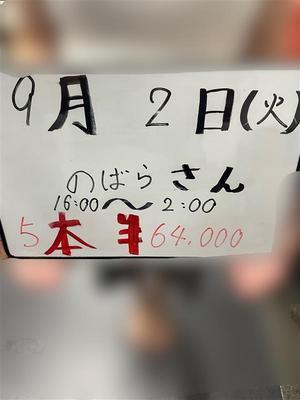 9月 2日(火)
のばらさん
16:00〜2:00
5本 ¥64.000